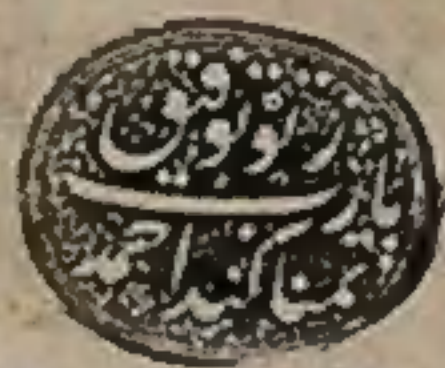 ز تو توفیق
یارب
تمنا کند احمد